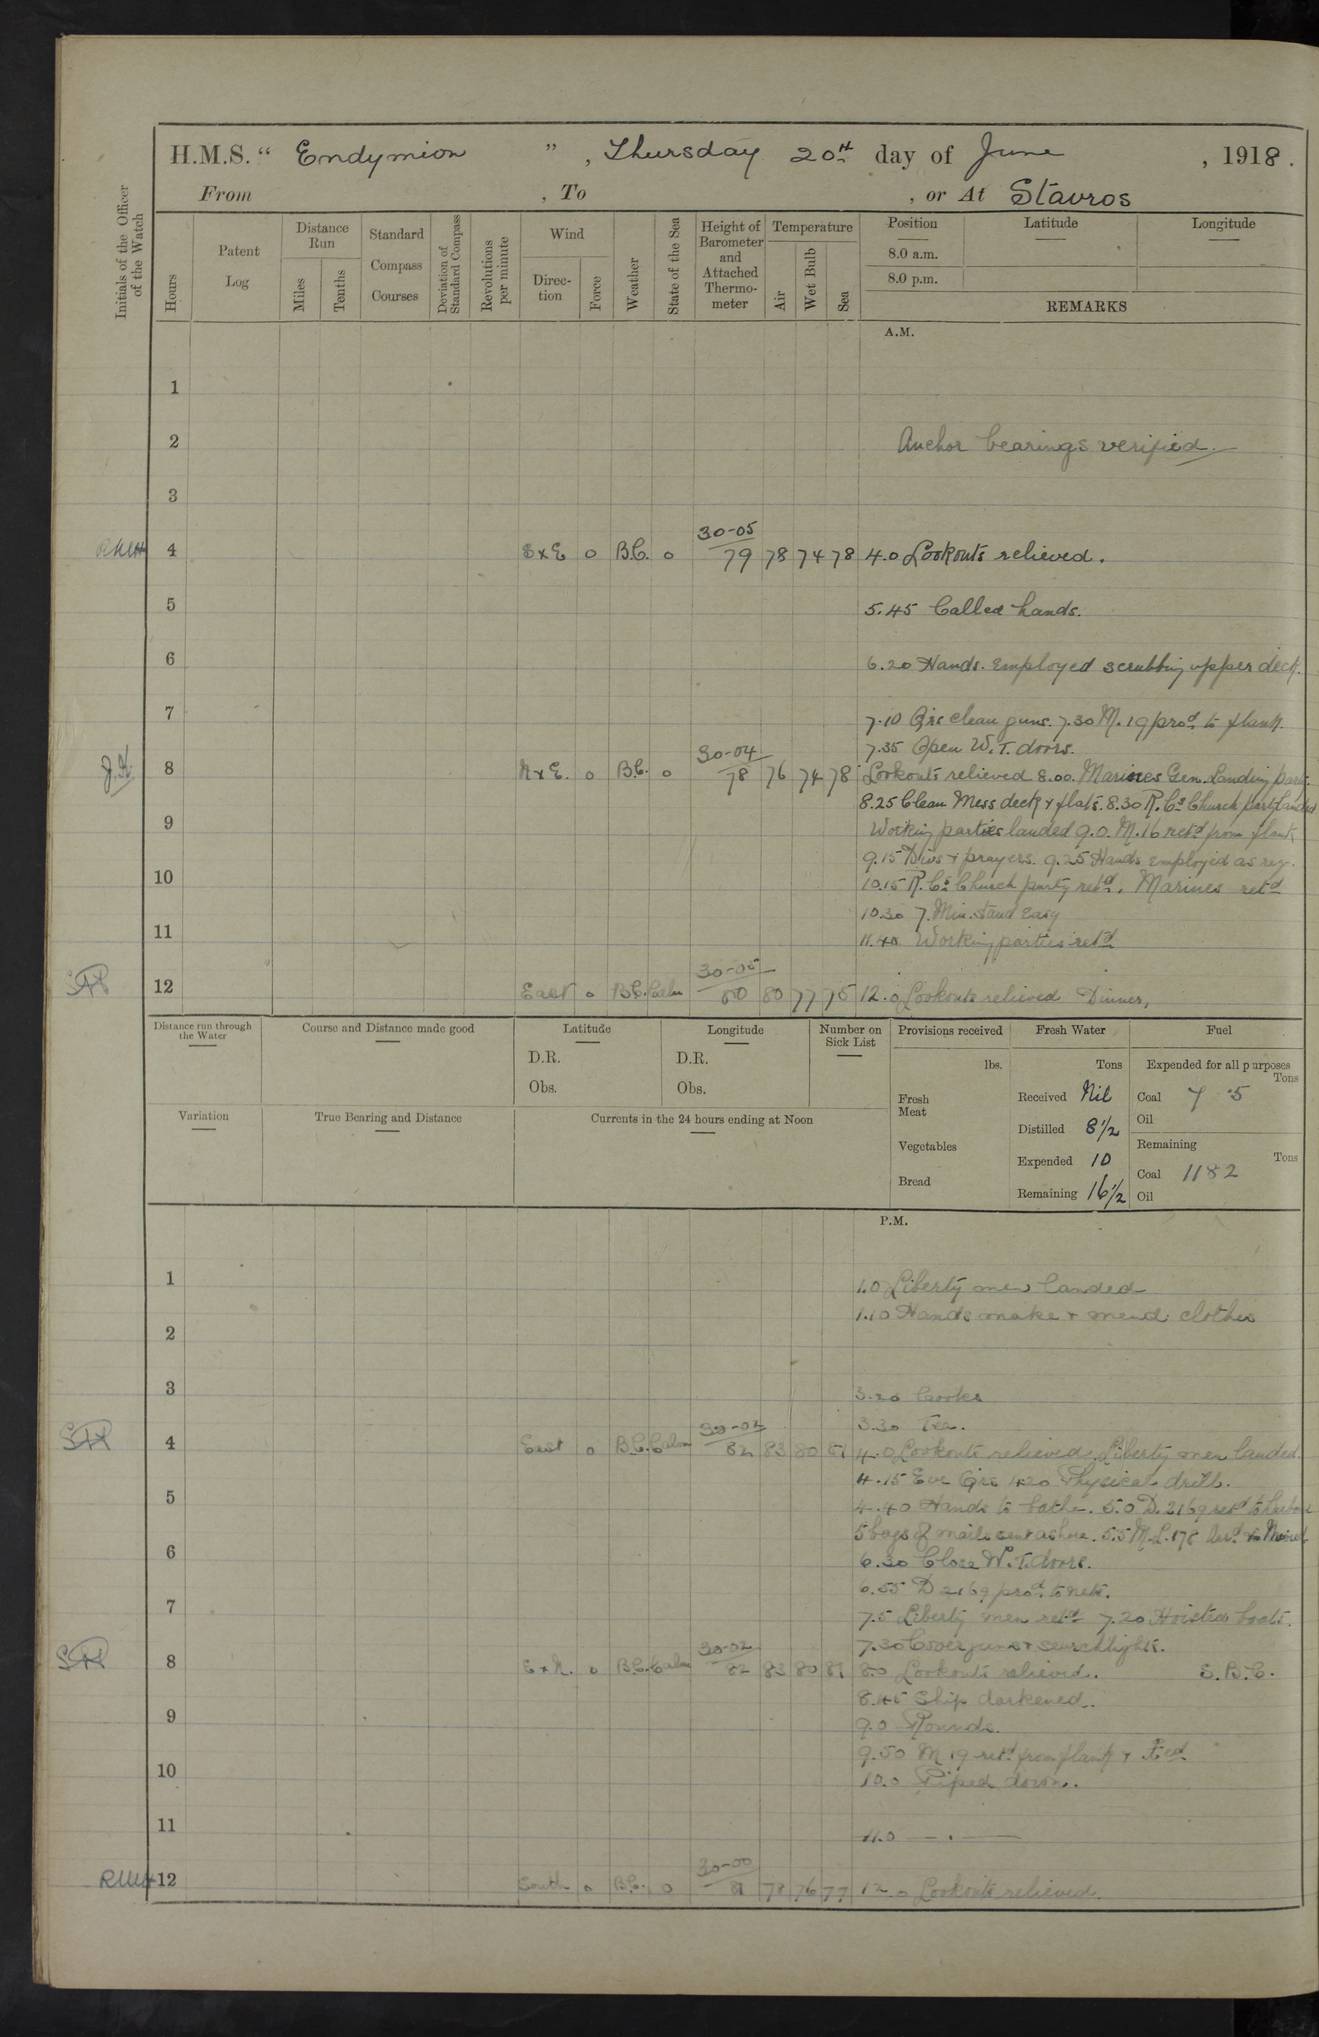 H.M.S. “ Endymion ” , Thursday 20th day of June , 1918 .
From , To , or At Stavros
Initials of the Officer of the Watch
Hours
Patent Log
Distance Run
Miles
Tenths
Standard Compass Courses
Deviation of Standard Compass
Revolutions per minute
Wind
Direc-tion
Force
Weather
State of the Sea
Height of Barometer and Attached Thermo-meter
Temperature
Air
Wet Bulb
Sea
Position
Latitude
Longitude
8.0 a.m.
8.0 p.m.
REMARKS
A.M.
1
2 Anchor bearings verified.
3
30-05
4 SxE 0 B.C. 0 79 78 74 78 4.0 Lookouts relieved.
5 5.45 Called hands.
6 6.20 Hands employed scrubbing upper deck.
7 7.10 Qrs clean guns. 7.30 M.19 prod to flank.
7.35 Open W.T. doors.
30-04
8 NxE. 0 B.C. 0 78 76 74 78 Lookouts relieved 8.00. Marines Gen. Landing party.
8.25 Clean Mess deck & flats. 8.30 R.Cs Church party landed
9 Working parties landed 9.0. M.16 retd from flank
9.15 Divs & prayers. 9.25 Hands employed as req.
10 10.15 R.Cs Church party retd. Marines retd
10.30 7 Min. Stand Easy
11 11.40 Working parties retd
30-05
12 East 0 B.C. Calm 80 80 77 75 12.0 Lookouts relieved Dinner,
Distance run through the Water
Course and Distance made good
Latitude
Longitude
Number on Sick List
Provisions received
Fresh Water
Fuel
D.R.
D.R.
lbs.
Tons
Expended for all purposes
Tons
Obs.
Obs.
Fresh Meat
Received Nil
Coal 7 .5
Oil
Variation
True Bearing and Distance
Currents in the 24 hours ending at Noon
Distilled 8½
Vegetables
Remaining
Tons
Expended 10
Coal 1182
Bread
Remaining 16½
Oil
P.M.
1 1.0 Liberty men landed
1.10 Hands make & mend clothes
2
3 3.20 Cooks
3.30 Tea.
30-02
4 East 0 B.C. Calm 82 83 80 81 4.0 Lookouts relieved. Liberty men landed.
4.15 Eve Qrs 4.20 Physical drill.
5 4.40 Hands to bathe. 5.0 D.2169 retd to harbour
5 bags of mails sent ashore. 5.5 M.L.178
6 6.30 Close W.T. doors.
6.55 D 2169 prod to nets.
7 7.5 Liberty men retd 7.20 Hoisted boats.
7.30 Cover guns & searchlights.
30-02
8 ExN. 0 B.C. Calm 82 83 80 81 8.0 Lookouts relieved. S.B.C.
8.45 Ship darkened.
9 9.0 Rounds.
9.50 M 19 retd from flank &
10 10.0 Piped down.
11 11.0 — . —
30-00
12 South 0 B.C. 0 81 78 76 77 12.0 Lookouts relieved.